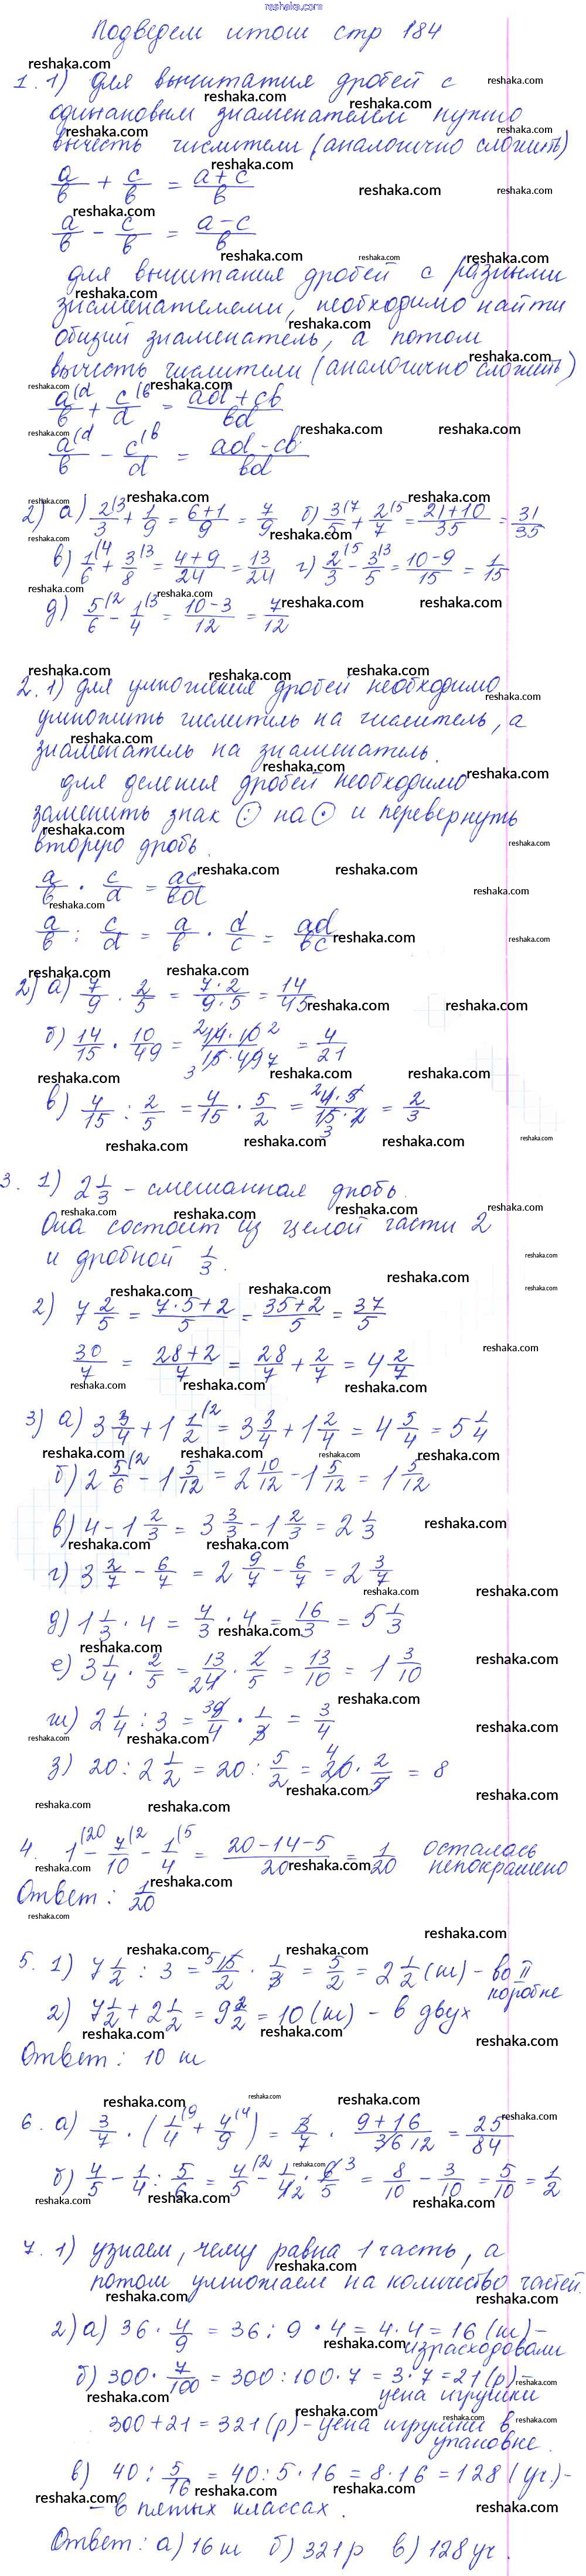 reshaka.com
Подведем итоги стр 184
1. 1) для вычитания дробей с
одинаковым знаменателем нужно
вычесть числители (аналогично сложить)
a/b + c/b = a+c/b
a/b - c/b = a-c/b
для вычитания дробей с разными
знаменателями, необходимо найти
общий знаменатель, а потом
вычесть числители (аналогично сложить)
a(d/b + c(b/d = ad+cb/bd
a(d/b - c(b/d = ad-cb/bd
2) а) 2(3/3 + 1/9 = 6+1/9 = 7/9 б) 3(7/5 + 2(5/7 = 21+10/35 = 31/35
в) 1(4/6 + 3(3/8 = 4+9/24 = 13/24 г) 2(5/3 - 3(3/5 = 10-9/15 = 1/15
д) 5(2/6 - 1(3/4 = 10-3/12 = 7/12
2. 1) для умножения дробей необходимо
умножить числитель на числитель, а
знаменатель на знаменатель.
для деления дробей необходимо
заменить знак : на · и перевернуть
вторую дробь.
a/b · c/d = ac/bd
a/b : c/d = a/b · d/c = ad/bc
2) а) 7/9 · 2/5 = 7·2/9·5 = 14/45
б) 14/15 · 10/49 = 2 14·10 2/3 15·49 7 = 4/21
в) 4/15 : 2/5 = 4/15 · 5/2 = 2 4·5/15·2 3 = 2/3
3. 1) 2 1/3 - смешанная дробь.
Она состоит из целой части 2
и дробной 1/3.
2) 7 2/5 = 7·5+2/5 = 35+2/5 = 37/5
30/7 = 28+2/7 = 28/7 + 2/7 = 4 2/7
3) а) 3 3/4 + 1 1(2/2 = 3 3/4 + 1 2/4 = 4 5/4 = 5 1/4
б) 2 5(2/6 - 1 5/12 = 2 10/12 - 1 5/12 = 1 5/12
в) 4 - 1 2/3 = 3 3/3 - 1 2/3 = 2 1/3
г) 3 2/7 - 6/7 = 2 9/7 - 6/7 = 2 3/7
д) 1 1/3 · 4 = 4/3 · 4 = 16/3 = 5 1/3
е) 3 1/4 · 2/5 = 13/2 4 · 2/5 = 13/10 = 1 3/10
ж) 2 1/4 : 3 = 3 9/4 · 1/3 = 3/4
з) 20 : 2 1/2 = 20 : 5/2 = 4 20 · 2/5 = 8
4. 1(20 - 7(2/10 - 1(5/4 = 20-14-5/20 = 1/20 осталась
непокрашено
Ответ: 1/20
5. 1) 7 1/2 : 3 = 5 15/2 · 1/3 = 5/2 = 2 1/2 (м) - во II
коробке
2) 7 1/2 + 2 1/2 = 9 2/2 = 10 (м) - в двух
Ответ: 10 м
6. а) 3/7 · (1(9/4 + 4(4/9) = 3/7 · 9+16/36 12 = 25/84
б) 4/5 - 1/4 : 5/6 = 4(2/5 - 1/4 2 · 6 3/5 = 8/10 - 3/10 = 5/10 = 1/2
7. 1) узнаем, чему равна 1 часть, а
потом умножаем на количество частей.
2) а) 36 · 4/9 = 36 : 9 · 4 = 4 · 4 = 16 (м) -
израсходовали
б) 300 · 7/100 = 300 : 100 · 7 = 3 · 7 = 21 (р) -
цена игрушки
300 + 21 = 321 (р) - цена игрушки в
упаковке.
в) 40 : 5/16 = 40 : 5 · 16 = 8 · 16 = 128 (уч.) -
- в пятых классах.
Ответ: а) 16 м б) 321 р в) 128 уч.